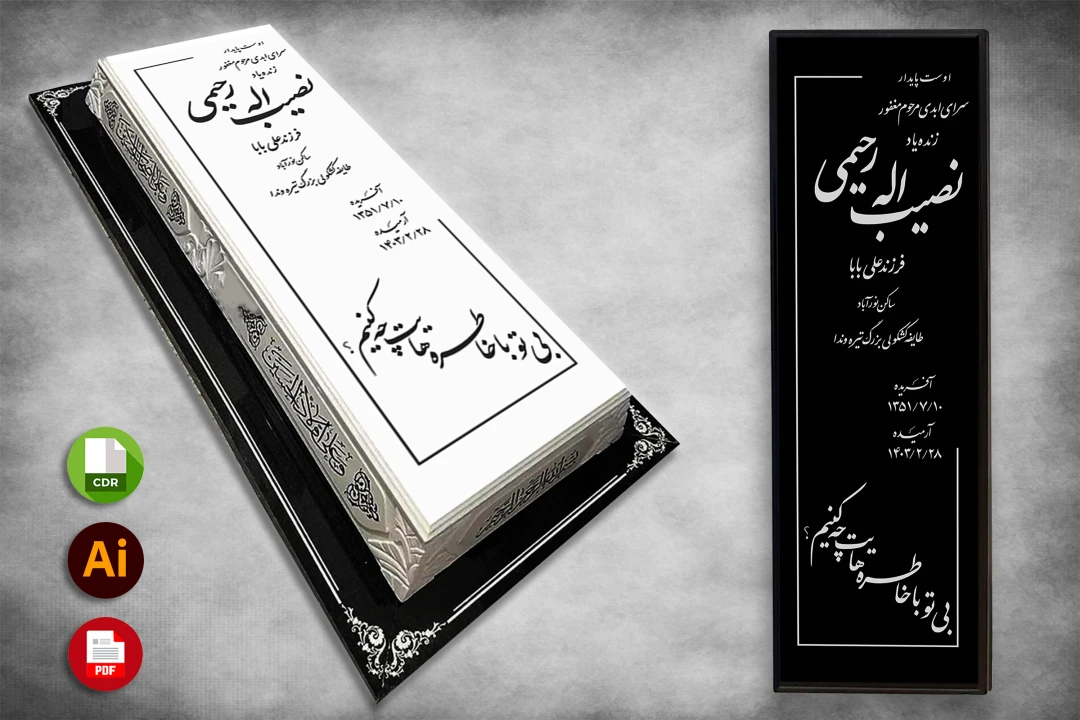 اوست پایدار
سرای ابدی مرحوم مغفور
زنده یاد
نصیب اله رحیمی
فرزند علی بابا
ساکن نورآباد
طایفه کشکولی بزرگ تیره وندا
آفریده
۱۳۵۱/۷/۱۰
آرمیده
۱۴۰۳/۲/۲۸
بی تو با خاطره هایت چه کنیم ؟
اوست پایدار
سرای ابدی مرحوم مغفور
زنده یاد
نصیب اله رحیمی
فرزند علی بابا
ساکن نورآباد
طایفه کشکولی بزرگ تیره وندا
آفریده
۱۳۵۱/۷/۱۰
آرمیده
۱۴۰۳/۲/۲۸
بی تو با خاطره هایت چه کنیم ؟
CDR
Ai
PDF